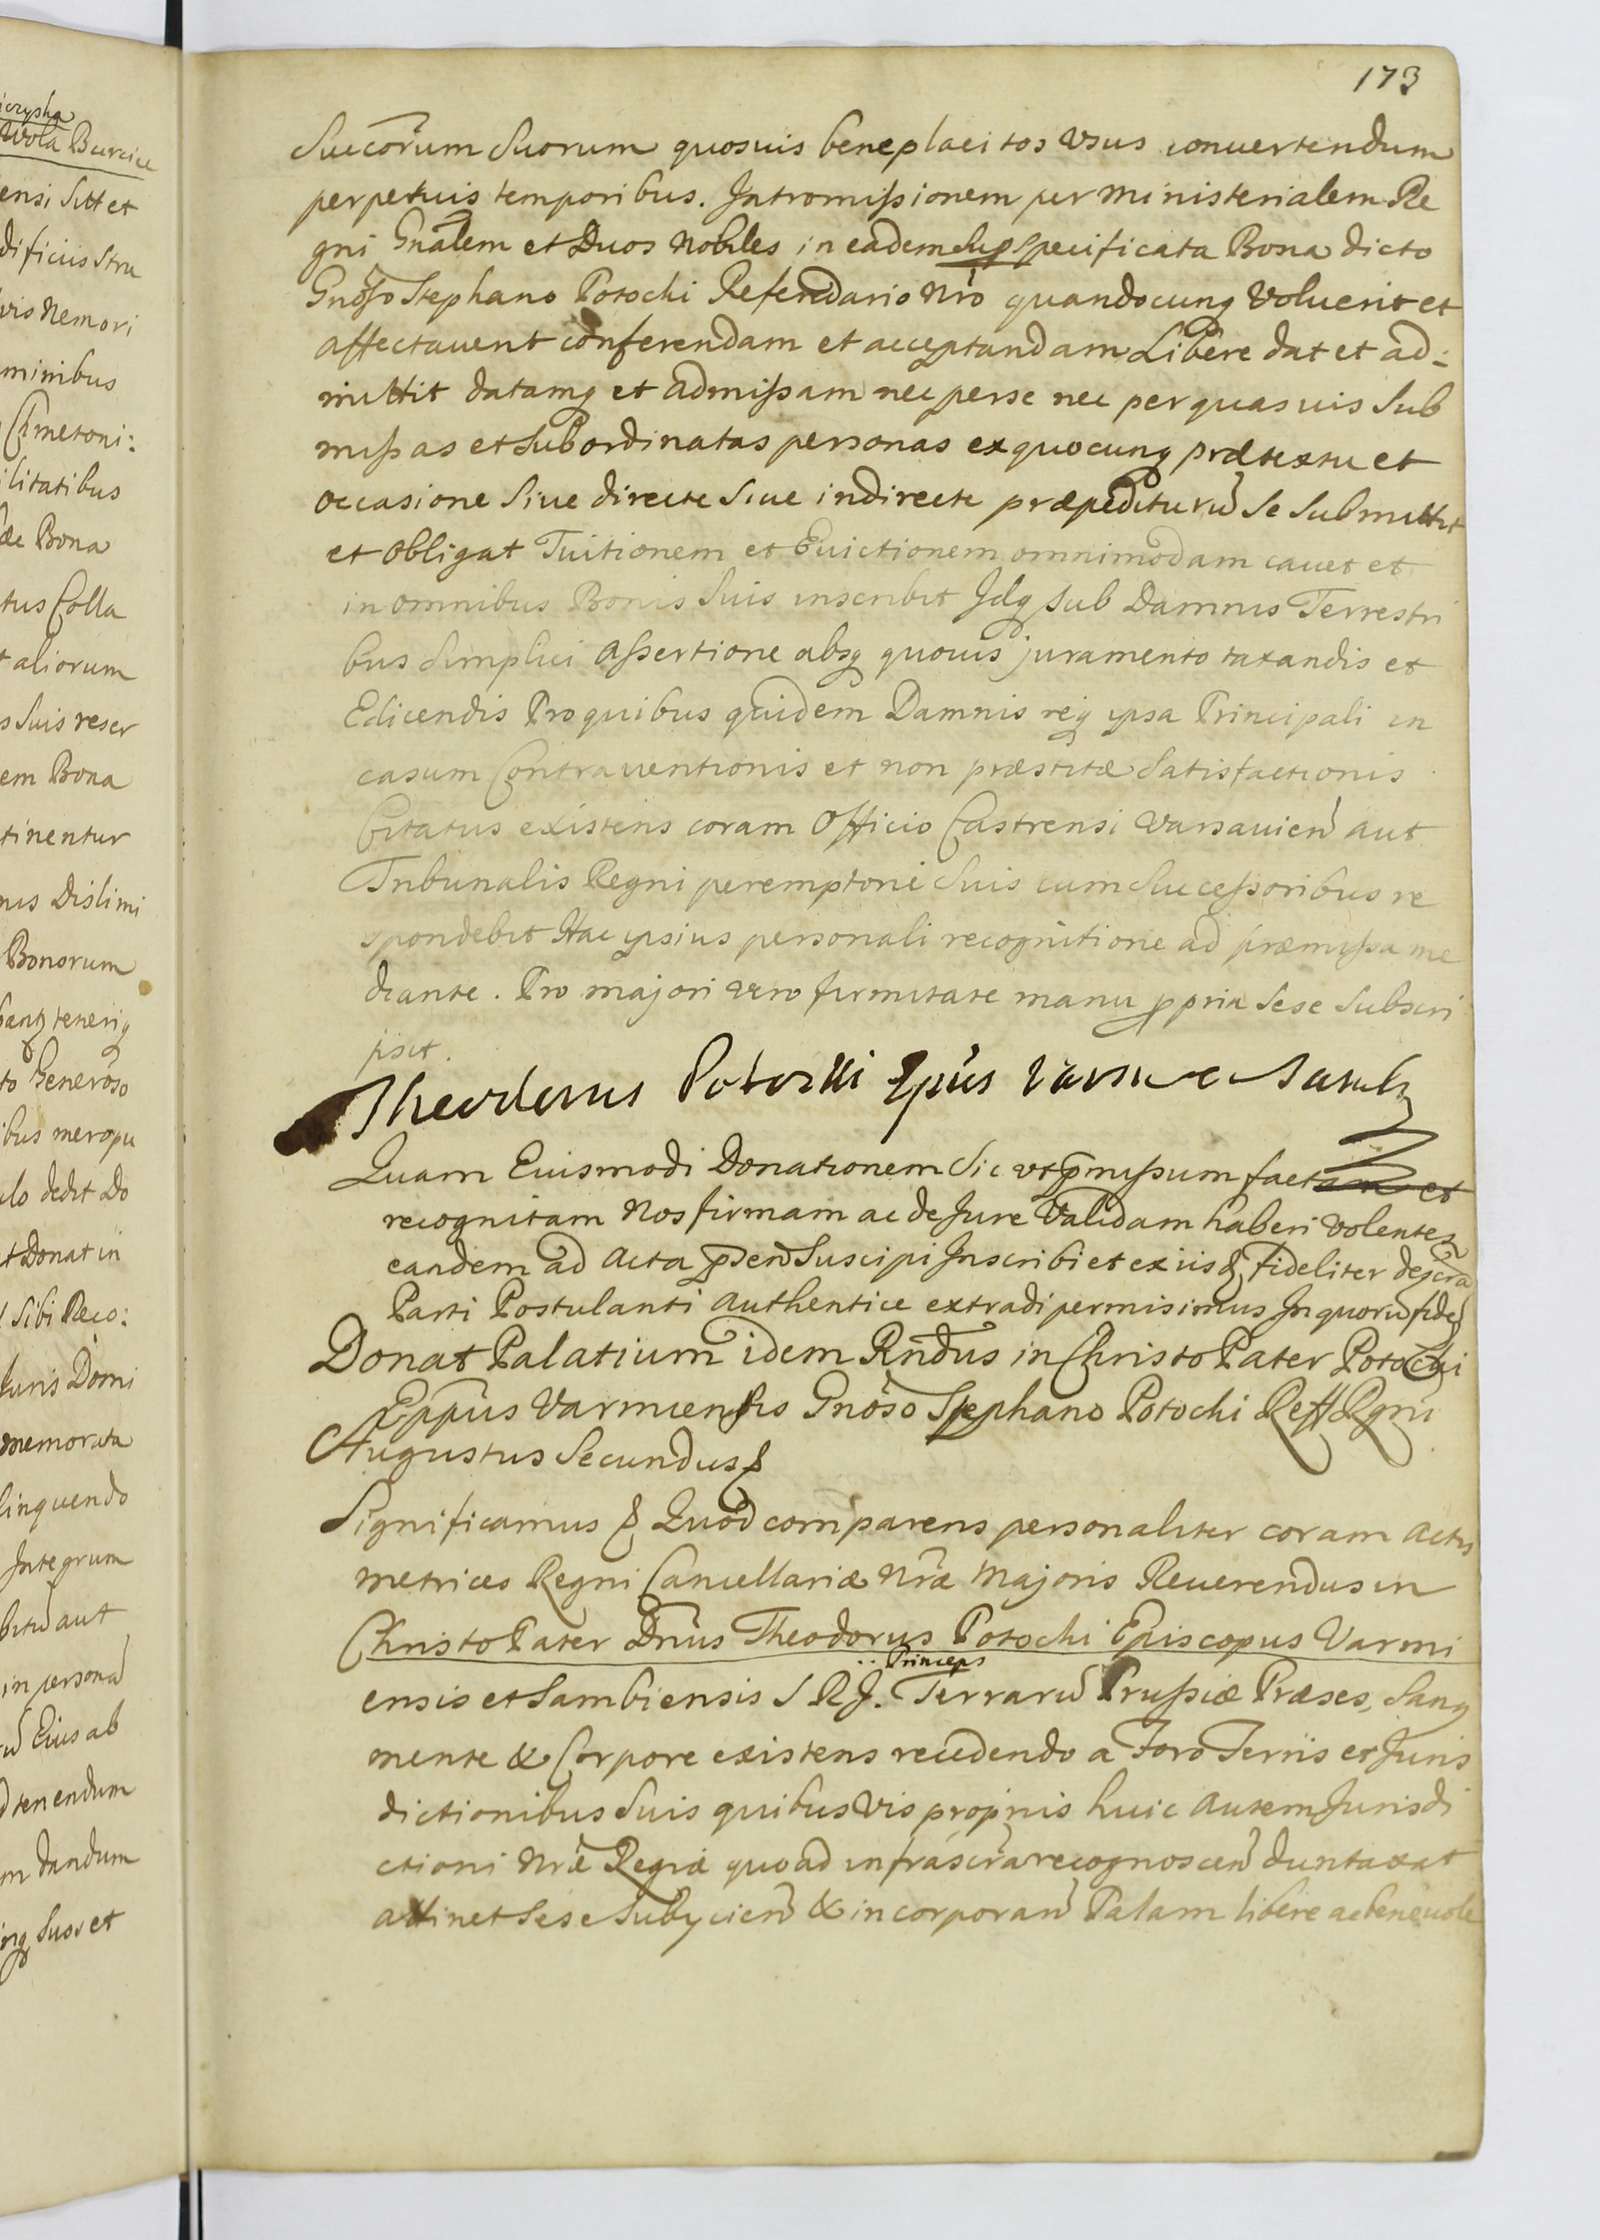 icrypha
Wola Burcice
ensi Sitt et
dificiis Stru
vis Nemori
minibus
Cmetoni:
ilitatibus
dæ Bona
tus Colla
t aliorum
s Suis reser
em Bona
tinentur
nis Dislimi
Bonorum
tenerisq
to Generoso
ibus meropu
ulo dedit Do
et Donat in
Sibi Reco:
Juris Domi
memorata
linquendo
Integrum
aut
in persona
Eius ab
d tenendum
m dandum
Suos et
173
Succorum Suorum quosuis beneplacitos Vsus conuertendum
perpetuis temporibus. Intromissionem per Ministerialem Re
gni Gnalem et Duos Nobiles in eadem Sup Specificata Bona dicto
Gnoso Stephano Potocki Referendario Nro quandocunq Voluerit et
affectauerit conferendam et acceptandam Libere dat et ad:
mittit datamq et admissam nec per se nec per quasuis Sub
missas et Subordinatas personas ex quocunq prætextu et
occasione Siue directe Siue indirecte præpediturũ Se Submittit
et Obligat Tuitionem et Euictionem omnimodam cauet et
in omnibus Bonis Suis inscribit Idq Sub Damnis Terrestri
bus Simplici assertione absq quouis juramento taxandis et
Edicendis Pro quibus quidem Damnis req ipsa Principali in
casum Contrauentionis et non præstitæ Satisfactionis
Citatus existens coram Officio Castrensi Varsauien aut
Tribunalis Regni peremptorie Suis cum Successoribus re
spondebit Hac ipsius personali recognitione ad præmissa me
diante. Pro majori vero firmitate manu ppria Sese Subscri
psit.
Theodorus Potocki Epûs Varm e Samb
Quam Euismodi Donationem Sic vt pmissum factam et
recognitam Nos firmam ac de Jure Validam haberi Volentes
eandem ad Acta pden Suscipi Inscribi et ex iis & fideliter descra
Parti Postulanti authentice extradi permisimus In quorũ fide
Donat Palatium idem Rndus in Christo Pater Potocki
Eppus Varmiensis Gnoso Stephano Potocki Reff Rgni
Augustus Secundus &
Significamus & Quod comparens personaliter coram Actis
Metrices Regni Cancellariæ Nræ Majoris Reuerendus in
Christo Pater Dnus Theodorus Potocki Episcopus Varmi
Princeps
ensis et Sambiensis S R J. Terrarũ Prussiæ Præses, Sanq
mente & Corpore existens recedendo a Foro Terris et Juris
dictionibus Suis quibusvis proprijs huic autem Jurisdi
ctioni Nræ Regiæ quo ad infrascra recognoscen duntaxat
attinet Sese Subijcien & incorporan Palam libere ac beneuole